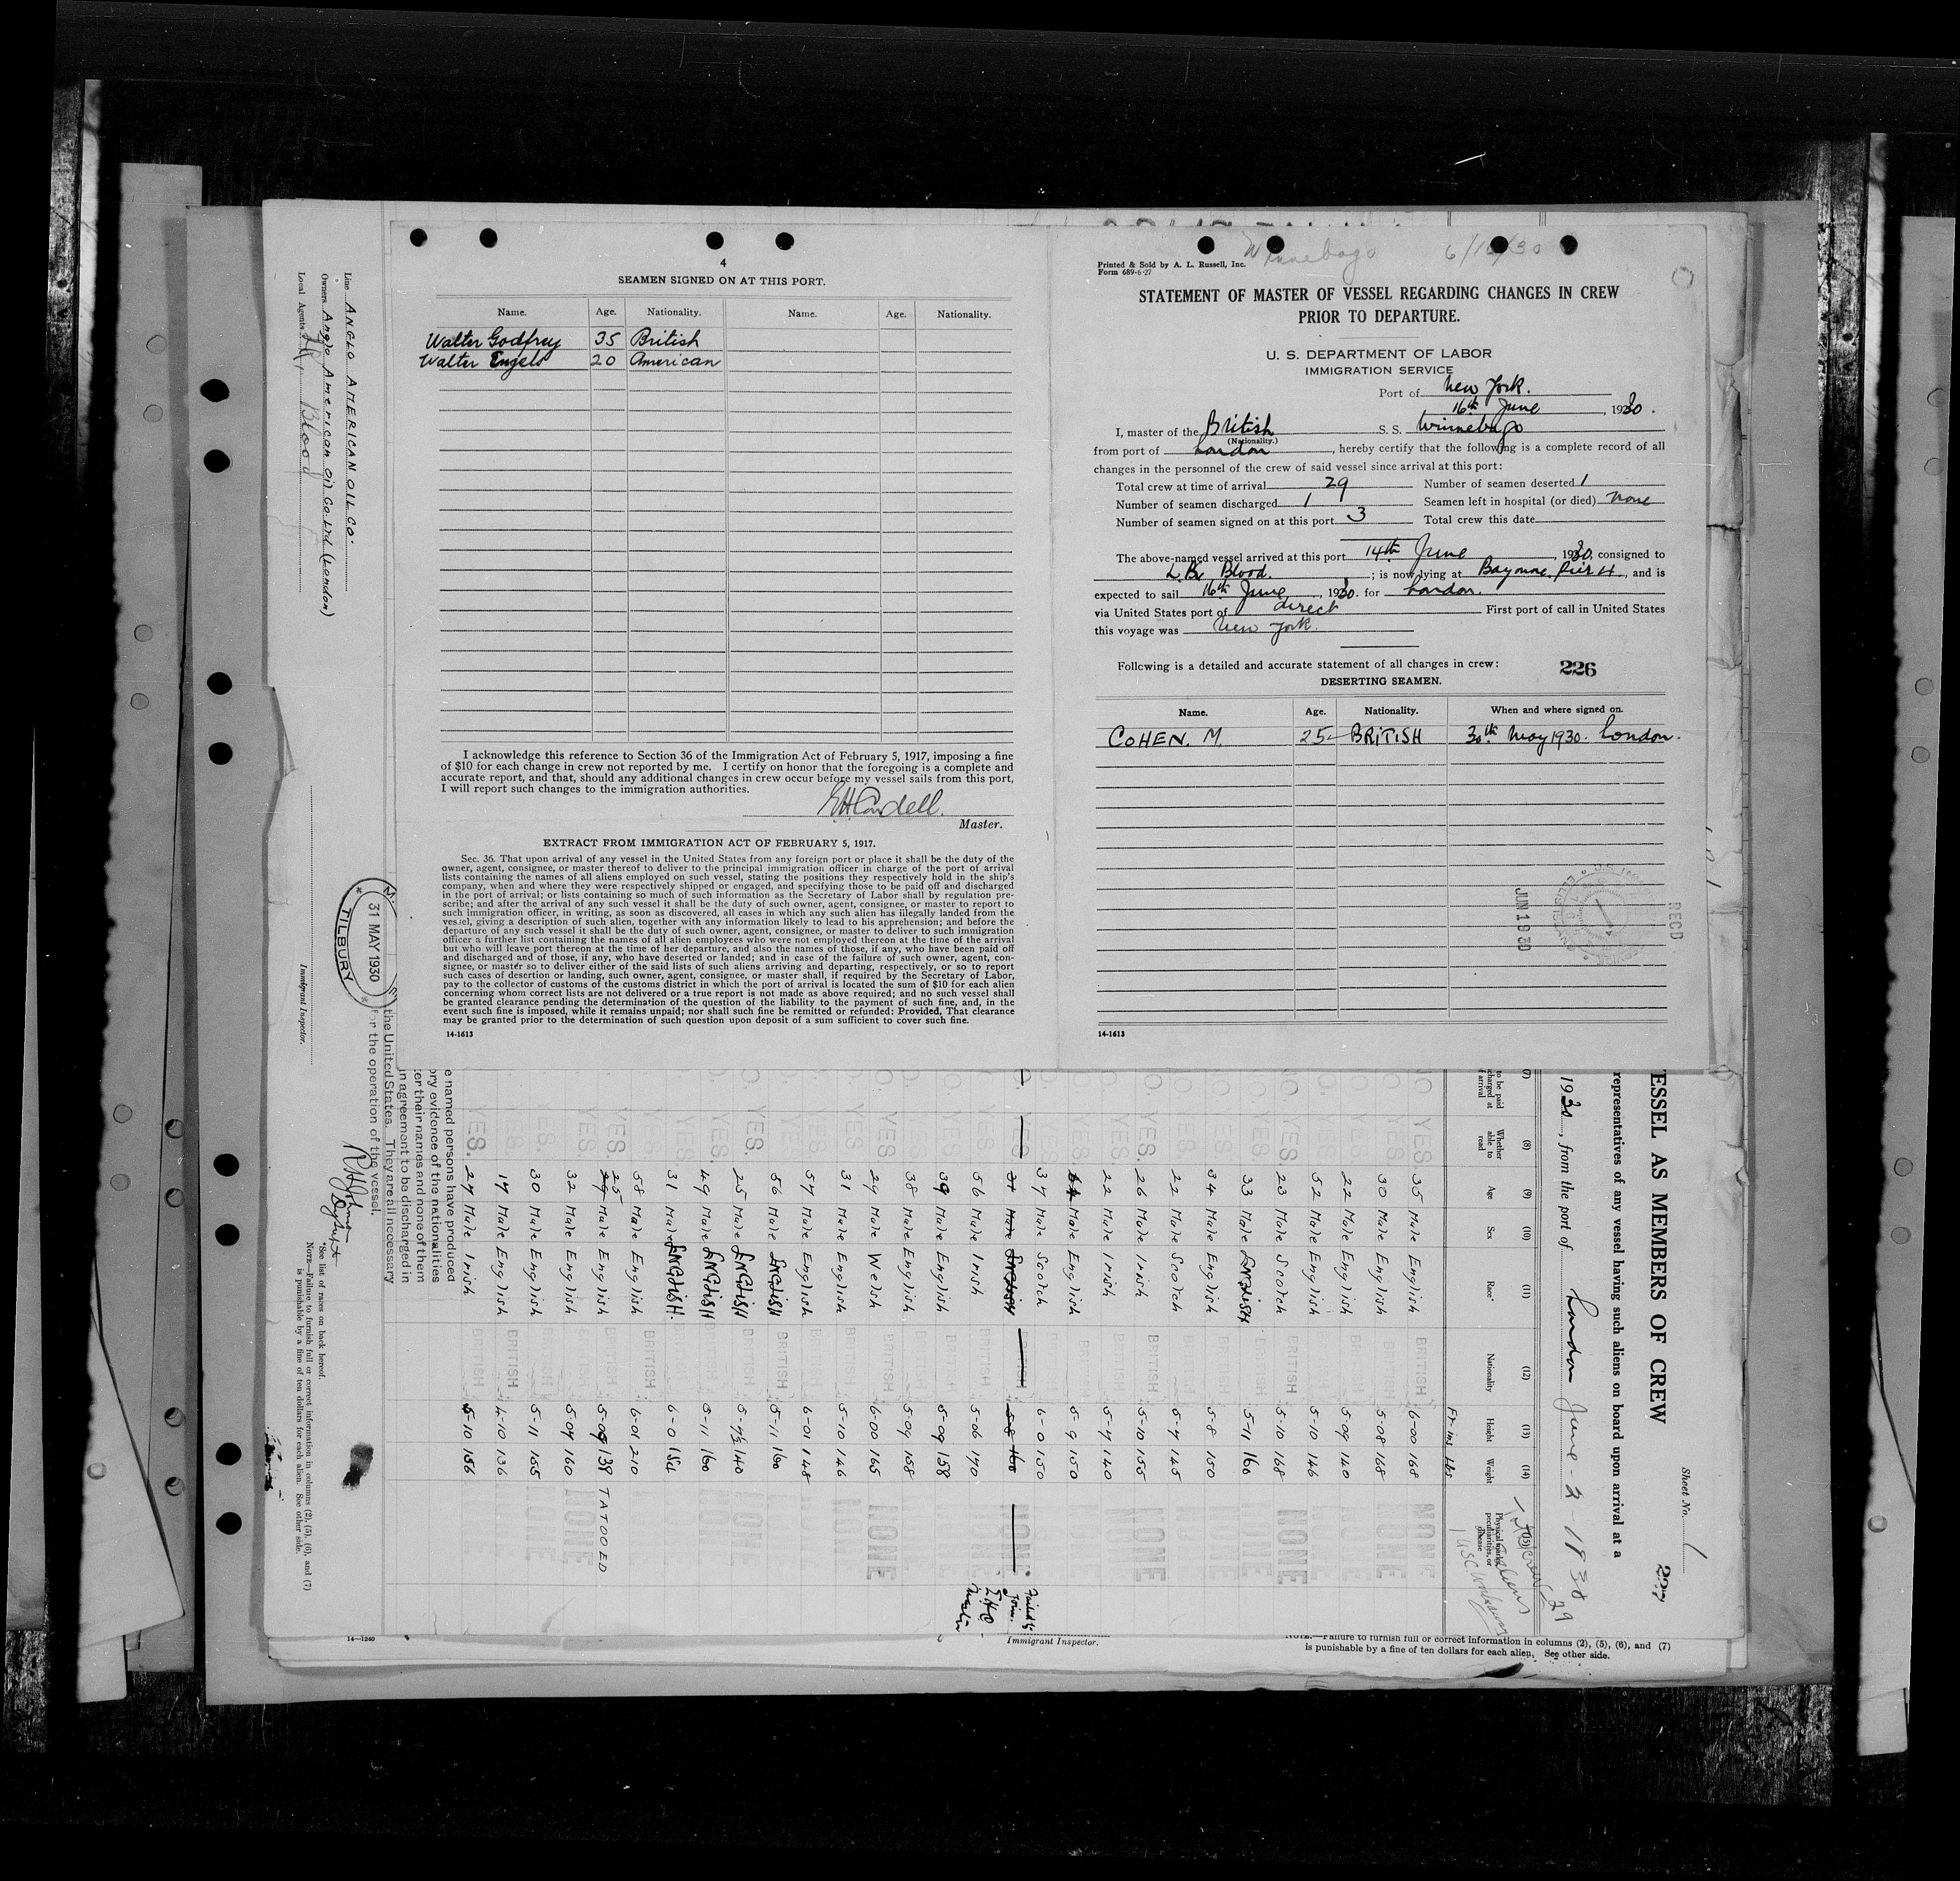 4
SEAMEN SIGNED ON AT THIS PORT.
Name. Age. Nationality. Name. Age. Nationality.
Walter Godfrey 35 British
Walter Engels 20 American
I acknowledge this reference to Section 36 of the Immigration Act of February 5, 1917, imposing a fine
of $10 for each change in crew not reported by me. I certify on honor that the foregoing is a complete and
accurate report, and that, should any additional changes in crew occur before my vessel sails from this port,
I will report such changes to the immigration authorities.
Master.
EXTRACT FROM IMMIGRATION ACT OF FEBRUARY 5, 1917.
Sec. 36. That upon arrival of any vessel in the United States from any foreign port or place it shall be the duty of the
owner, agent, consignee, or master thereof to deliver to the principal immigration officer in charge of the port of arrival
lists containing the names of all aliens employed on such vessel, stating the positions they respectively hold in the ship's
company, when and where they were respectively shipped or engaged, and specifying those to be paid off and discharged
in the port of arrival; or lists containing so much of such information as the Secretary of Labor shall by regulation pre-
scribe; and after the arrival of any such vessel it shall be the duty of such owner, agent, consignee, or master to report to
such immigration officer, in writing, as soon as discovered, all cases in which any such alien has illegally landed from the
vessel, giving a description of such alien, together with any information likely to lead to his apprehension; and before the
departure of any such vessel it shall be the duty of such owner, agent, consignee, or master to deliver to such immigration
officer a further list containing the names of all alien employees who were not employed thereon at the time of the arrival
but who will leave port thereon at the time of her departure, and also the names of those, if any, who have been paid off
and discharged and of those, if any, who have deserted or landed; and in case of the failure of such owner, agent, con-
signee, or master so to deliver either of the said lists of such aliens arriving and departing, respectively, or so to report
such cases of desertion or landing, such owner, agent, consignee, or master shall, if required by the Secretary of Labor,
pay to the collector of customs of the customs district in which the port of arrival is located the sum of $10 for each alien
concerning whom correct lists are not delivered or a true report is not made as above required; and no such vessel shall
be granted clearance pending the determination of the question of the liability to the payment of such fine, and, in the
event such fine is imposed, while it remains unpaid; nor shall such fine be remitted or refunded: Provided, That clearance
may be granted prior to the determination of such question upon deposit of a sum sufficient to cover such fine.
14-1613
Winnebago 6/16/30
Printed & Sold by A. L. Russell, Inc.
Form 689-6-27
STATEMENT OF MASTER OF VESSEL REGARDING CHANGES IN CREW
PRIOR TO DEPARTURE.
U. S. DEPARTMENT OF LABOR
IMMIGRATION SERVICE
Port of New York.
16th June, 1930.
I, master of the British S. S. Winnebago
(Nationality.)
from port of London, hereby certify that the following is a complete record of all
changes in the personnel of the crew of said vessel since arrival at this port:
Total crew at time of arrival 29 Number of seamen deserted 1
Number of seamen discharged 1 Seamen left in hospital (or died) None
Number of seamen signed on at this port 3 Total crew this date
The above-named vessel arrived at this port 14th June, 1930, consigned to
L. B. Blood.; is now lying at Bayonne, Pier 4, and is
expected to sail 16th June, 1930. for London.
via United States port of direct First port of call in United States
this voyage was New York.
Following is a detailed and accurate statement of all changes in crew: 226
DESERTING SEAMEN.
Name. Age. Nationality. When and where signed on.
COHEN. M. 25 BRITISH 30th May 1930. London.
JUN 19 30
RECD
14-1613
Line ANGLO AMERICAN OIL CO.
Owners Anglo American Oil Co. Ltd (London)
Local Agents Blood
31 MAY 1930
TILBURY
Immigrant Inspector.
e named persons have produced
ory evidence of the nationalities
er their names and none of them
n agreement to be discharged in
the United States. They are all necessary
for the operation of the vessel.
*See list of races on back hereof.
NOTE.—Failure to furnish full or correct information in columns (2), (5), (6), and (7)
is punishable by a fine of ten dollars for each alien. See other side.
Sheet No. 1
227
ESSEL AS MEMBERS OF CREW
representatives of any vessel having such aliens on board upon arrival at a
1930, from the port of London June - 2 - 1930
(7) (8) (9) (10) (11) (12) (13) (14)
Whether able to read Age Sex Race* Nationality Height Weight Physical marks, peculiarities, or disease
Ft. ins Lbs
35 Male English BRITISH 6-00 168 NONE
30 Male English BRITISH 5-08 168 NONE
22 Male English BRITISH 5-09 140
52 Male English BRITISH 5-10 146
23 Male Scotch BRITISH 5-10 168 NONE
33 Male ENGLISH BRITISH 5-11 160
34 Male English 5-8 150
22 Male Scotch 5-7 145
26 Male Irish BRITISH 5-10 155 NONE
22 Male Irish BRITISH 5-7 140
Male English BRITISH 5-9 150
37 Male Scotch 6-0 150
31 Male ENGLISH BRITISH 5-8 160 Failed to join.
56 Male Irish BRITISH 5-06 170
39 Male English 5-09 158
38 Male English BRITISH 5-09 158
29 Male Welsh BRITISH 6-00 165 NONE
31 Male English BRITISH 5-10 146 NONE
57 Male English BRITISH 6-01 148
56 Male ENGLISH BRITISH 5-11 160
25 Male ENGLISH BRITISH 5-7½ 140
49 Male ENGLISH BRITISH 5-11 160 NONE
31 Male ENGLISH. BRITISH 6-0 154
58 Male English BRITISH 6-01 210
25 Male English BRITISH 5-09 138 TATOOED
32 Male English 5-07 160 NONE
30 Male English BRITISH 5-11 155 NONE
17 Male English BRITISH 4-10 136 NONE
27 Male Irish BRITISH 5-10 156
14—1240
Immigrant Inspector.
NOTE.—Failure to furnish full or correct information in columns (2), (5), (6), and (7)
is punishable by a fine of ten dollars for each alien. See other side.